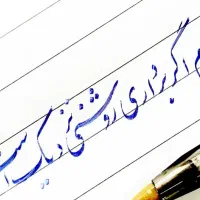 م اگر برداری روشنی نزدیک است